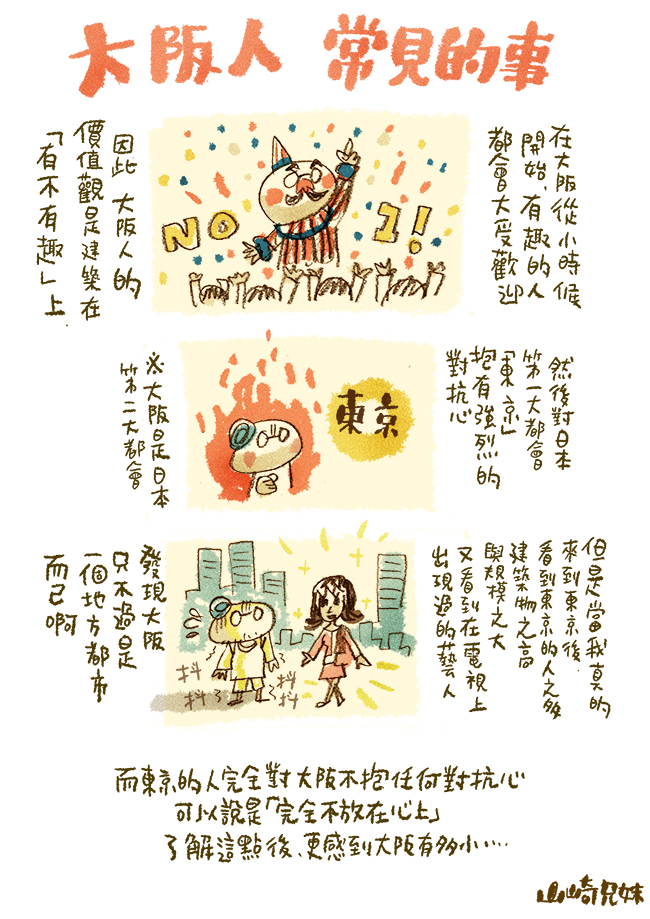 大阪人 常見的事
在大阪從小時候
開始、有趣的人
都會大受歡迎
NO 1!
因此 大阪人的
價值觀是建築在
「有不有趣」上
然後對日本
第一大都會
「東京」
抱有強烈的
對抗心
東京
※大阪是日本
第二大都會
但是當我真的
來到東京後
看到東京的人之多
建築物之高
與規模之大
又看到在電視上
出現過的藝人
抖
抖
抖
抖
發現大阪
只不過是
一個地方都市
而已啊
而東京的人完全對大阪不抱任何對抗心
可以說是「完全不放在心上」
了解這點後、更感到大阪有多小‧‧‧‧
山崎兄妹